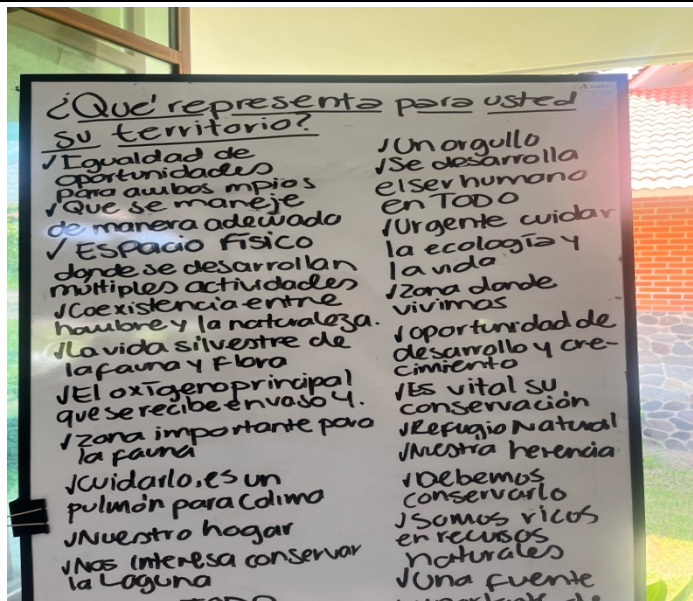 ¿Que' representa para usted
su territorio?
✓Igualdad de
oportunidades
para ambos mpios
✓Que se maneje
de manera adecuado
✓ ESPACIO Físico
donde se desarrollan
múltiples actividades
✓Coexistencia entre
hombre y la naturaleza.
✓La vida silvestre de
la fauna y Flora
✓El oxígeno principal
que se recibe en vaso 4.
✓Zona importante para
la fauna
✓Cuidarlo, es un
pulmón para Colima
✓Nuestro hogar
✓Nos interesa conservar
la Laguna
TODO
✓Un orgullo
✓Se desarrolla
el ser humano
en TODO
✓Urgente cuidar
la ecología y
la vida
✓Zona donde
vivimos
✓oportunidad de
desarrollo y cre-
cimiento
✓Es vital su
conservación
✓Refugio Natural
✓Nuestra herencia
✓Debemos
conservarlo
✓Somos ricos
en recursos
naturales
✓Una fuente